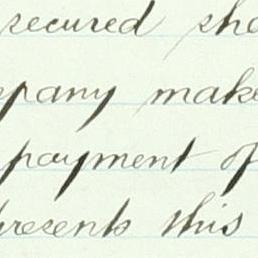 secured sha
pany make
payment of
presents this